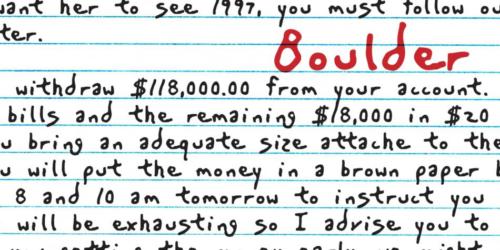 want her to see 1997, you must follow ou
ter.
Boulder
withdraw $118,000.00 from your account.
bills and the remaining $18,000 in $20
u bring an adequate size attache to the
u will put the money in a brown paper b
8 and 10 am tomorrow to instruct you
will be exhausting so I advise you to
getting the money early, we might